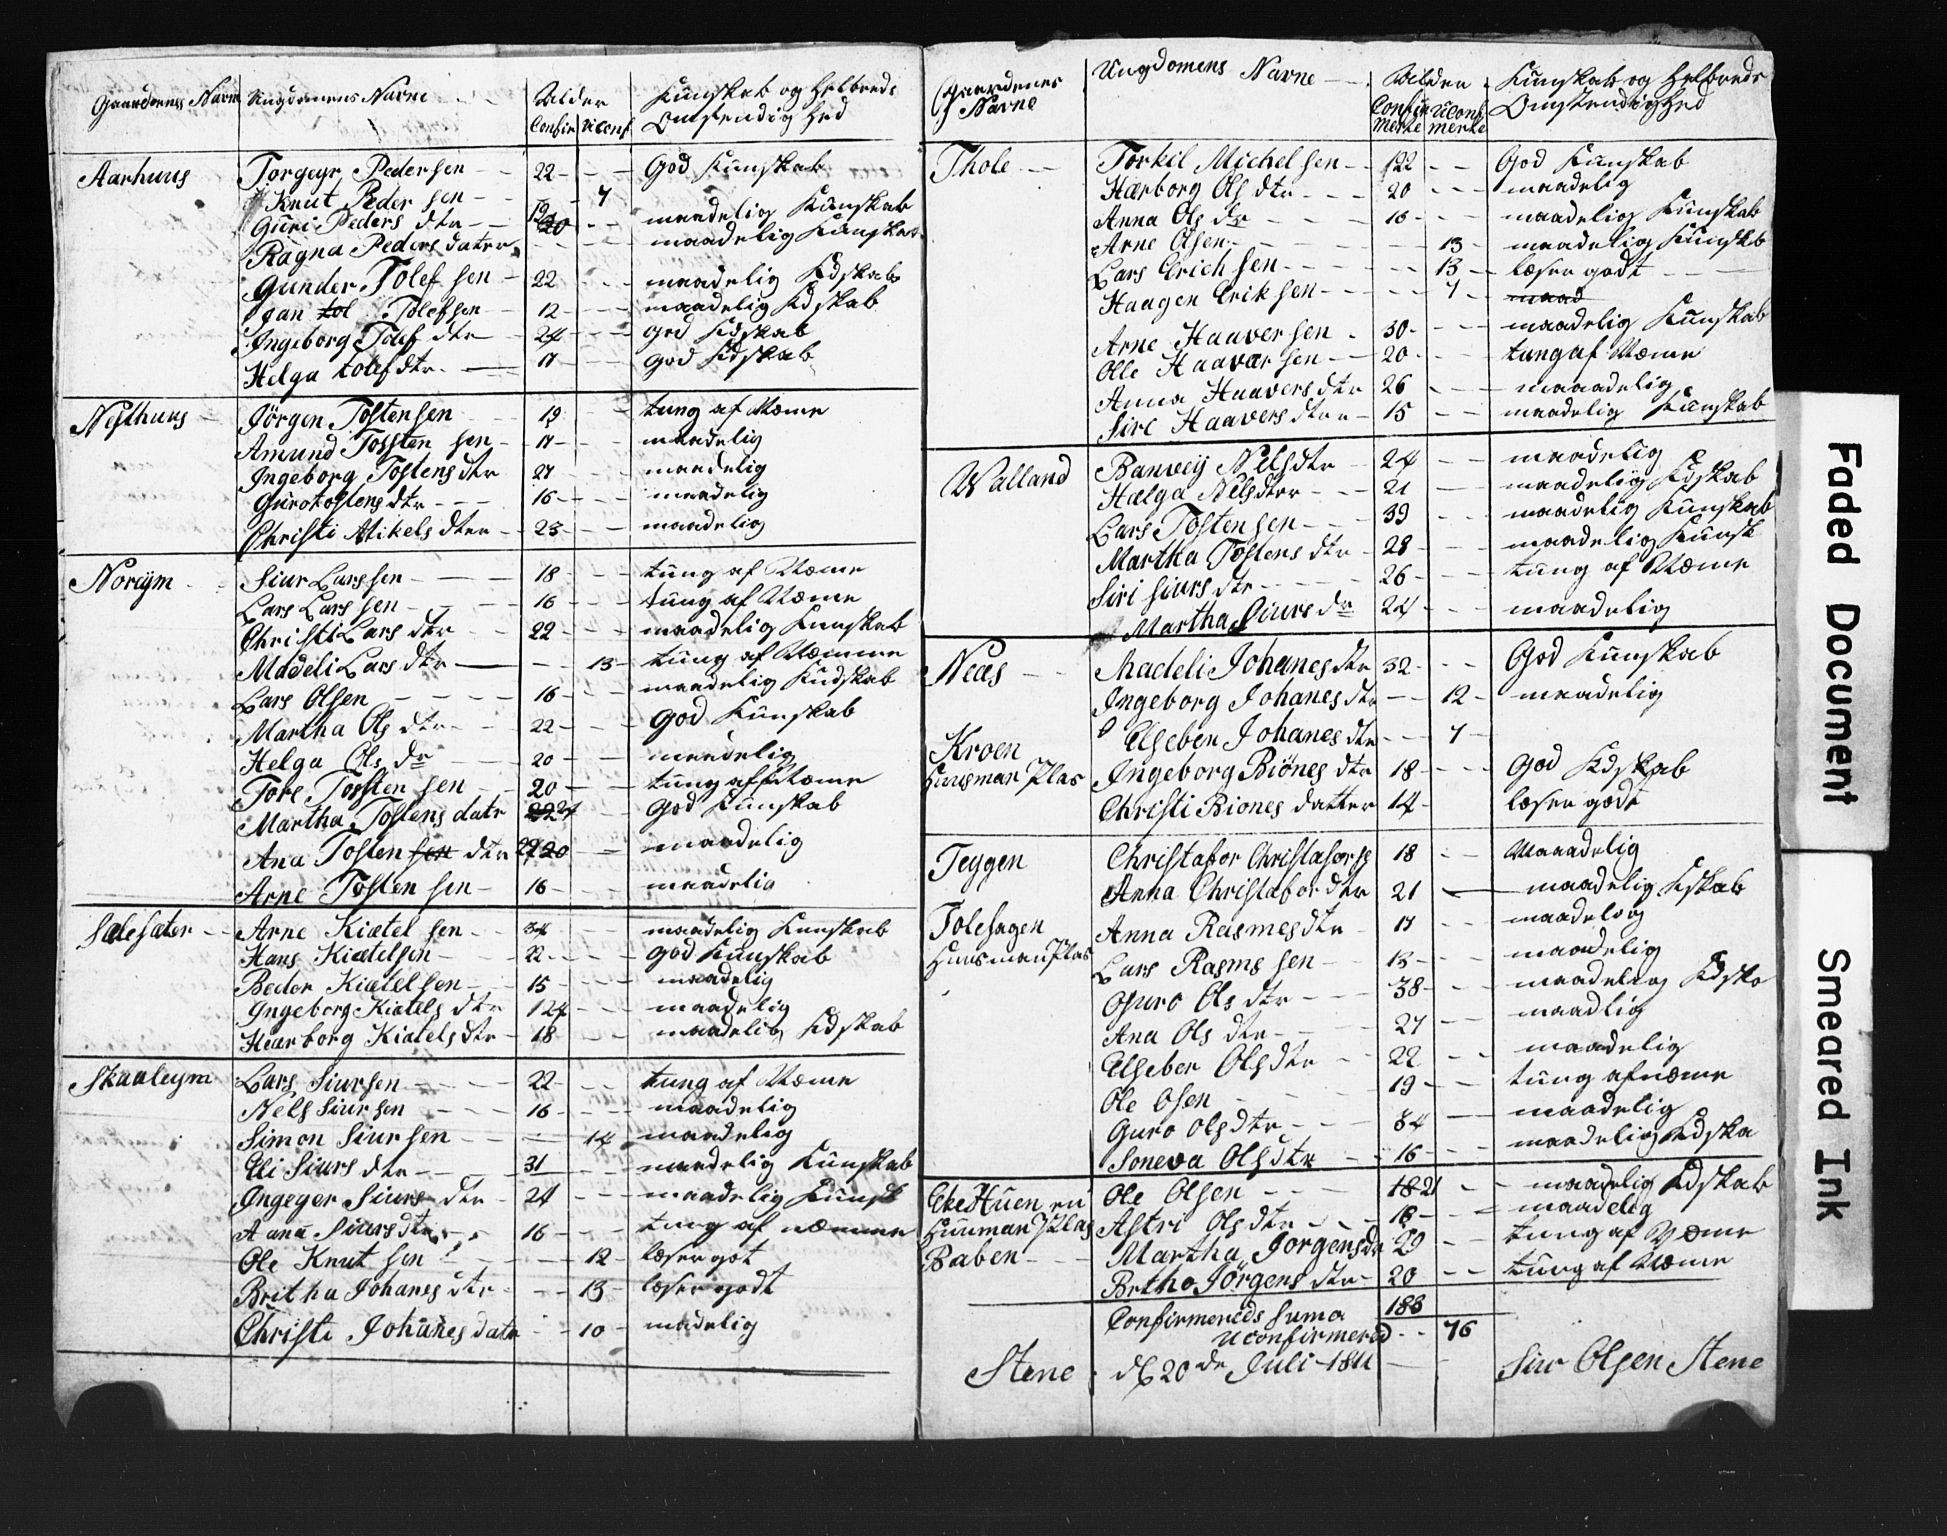 Gaardenes Navne Ungdomens Navne Alder Kunskab og Helbreds
Confir Uconf Omstendig hed
Aarhuus Torgeyr Pedersen 22 God Kunskab
Knut Peder sen 7
Guri Peders dtr 20 maadelig Kunskab
Ragna Peders dater maadelig Kunskab
Gunder Tolef sen 22 maadelig Kdskab
Jan tol Tolefsen 12 maadelig Kdskab
Ingeborg Tolef dtr 24 god Kdskab
Helga tolef dtr 17 god Kdskab
Nesthuus Jörgen Tostensen 19 tung af Næme
Amund Tossten sen 17 maadelig
Ingeborg Tostens dtr 27 maadelig
Guro tostens dtr 16 maadelig
Christi Mikels dter 23 maadelig
Noreym Siur Lars sen 18 tung af Næme
Lars Lars sen 16 tung af Næme
Christi Lars dtr 22 maadelig Kunskab
Madeli Lars dtr 13 tung af Næmme
Lars Olsen 16 maadelig Kudskab
Martha Ols dtr 22 God Kunskab
Helga Ols dr 20 maadelig
Tore Tossten sen 20 tung af Næme
Martha Tostens datr 22 24 God Kunskab
Ana Tosten sen dtr 27 20 maadelig
Arne Tosten sen 16 maadelig
Sælesæter Arne Kiætel sen 34 maadelig Kunskab
Hans Kiætelsen 22 god Kunskab
Beder Kiætelsen 15 maadelig
Ingeborg Kiætels dtr 124 maadelig
Hærborg Kiætels dtr 18 maadelig Kdskab
Skaaleym Lars Siursen 22 tung af Næme
Nels Siursen 16 maadelig
Simon Siursen 14 maadelig
Eli Siurs dtr 31 maadelig Kunskab
Ingeger Siurs dtr 24 maadelig Kunsk
Anna Siursdtr 16 tung af næmme
Ole Knut sen 12 læser got
Britha Johanes dtr 13 læser godt
Christi Johanes datr 10 madelig
Gaardenes Navne Ungdomens Navne Alder Kunskab og Helbreds
Confir merte Uconf merte Omstendighed
Thole Torkil Michelsen 22 God Kunskab
Hærborg Ols dtr 20 maadelig
Anna Ols dr 16 maadelig Kunskab
Arne Olsen 13 maadelig Kunskb
Lars Erichsen 13 læser godt
Haagen Eriksen 7 maad
Arne Haaversen 30 maadelig Kunskab
Olle Haavarsen 20 tung af Næme
Anna Haavers dtr 26 maaadelig
Sire Haavers dter 15 maadelig Kunskab
Walland Banveij Nelsdtr 24 maadelig
Hælga Nelsdter 21 maadelig Kdskab
Lars Tostensen 39 maadelig Kunskab
Martha Tostens dtr 28 maadelig Kunsk
Siri siurs dtr 26 tung af Næme
Martha Siurs dr 24 maadelig
Neæs Madeli Johanes dtr 32 God Kunskab
Ingeborg Johanes dtr 12 maadelig
Elseben Johanes dtr 7
Kroen
Huusman Plas Ingeborg Biönes dtr 18 God Kdskab
Christi Biones datter 14 læser godt
Teggen Christafor Christafors 18 Maaadelig
Anna Christafor dter 21 maadelig Kskab
Tolehagen Anna Rasmes dtr 17 maadelig
Huusman Plas Lars Rasmssen 13 maadelig
Guro Ols dtr 38 maadelig Kdska
Ana Ols dtr 27 maadlig
Elseber Ols dtr 22 maadelig
Ole Osen 19 tung afnæme
Guro Ols dtr 34 maadelig
Soneva Ols dtr 16 maadelig Kdska
Eke Huen en Ole Olsen 18 21 maadelig Kdskab
Huuman Plas Astri Ols dtr 18 maadelig
Baben Martha Jorgens dr 29 tung af Næme
Brtho Jörgens dtr 20 tung af Næme
Confirmereds Suma 188
Uconfirmered 76
Stene d 20 de Juli 1811 Siur Olsen Stene
Faded Document
Smeared Ink